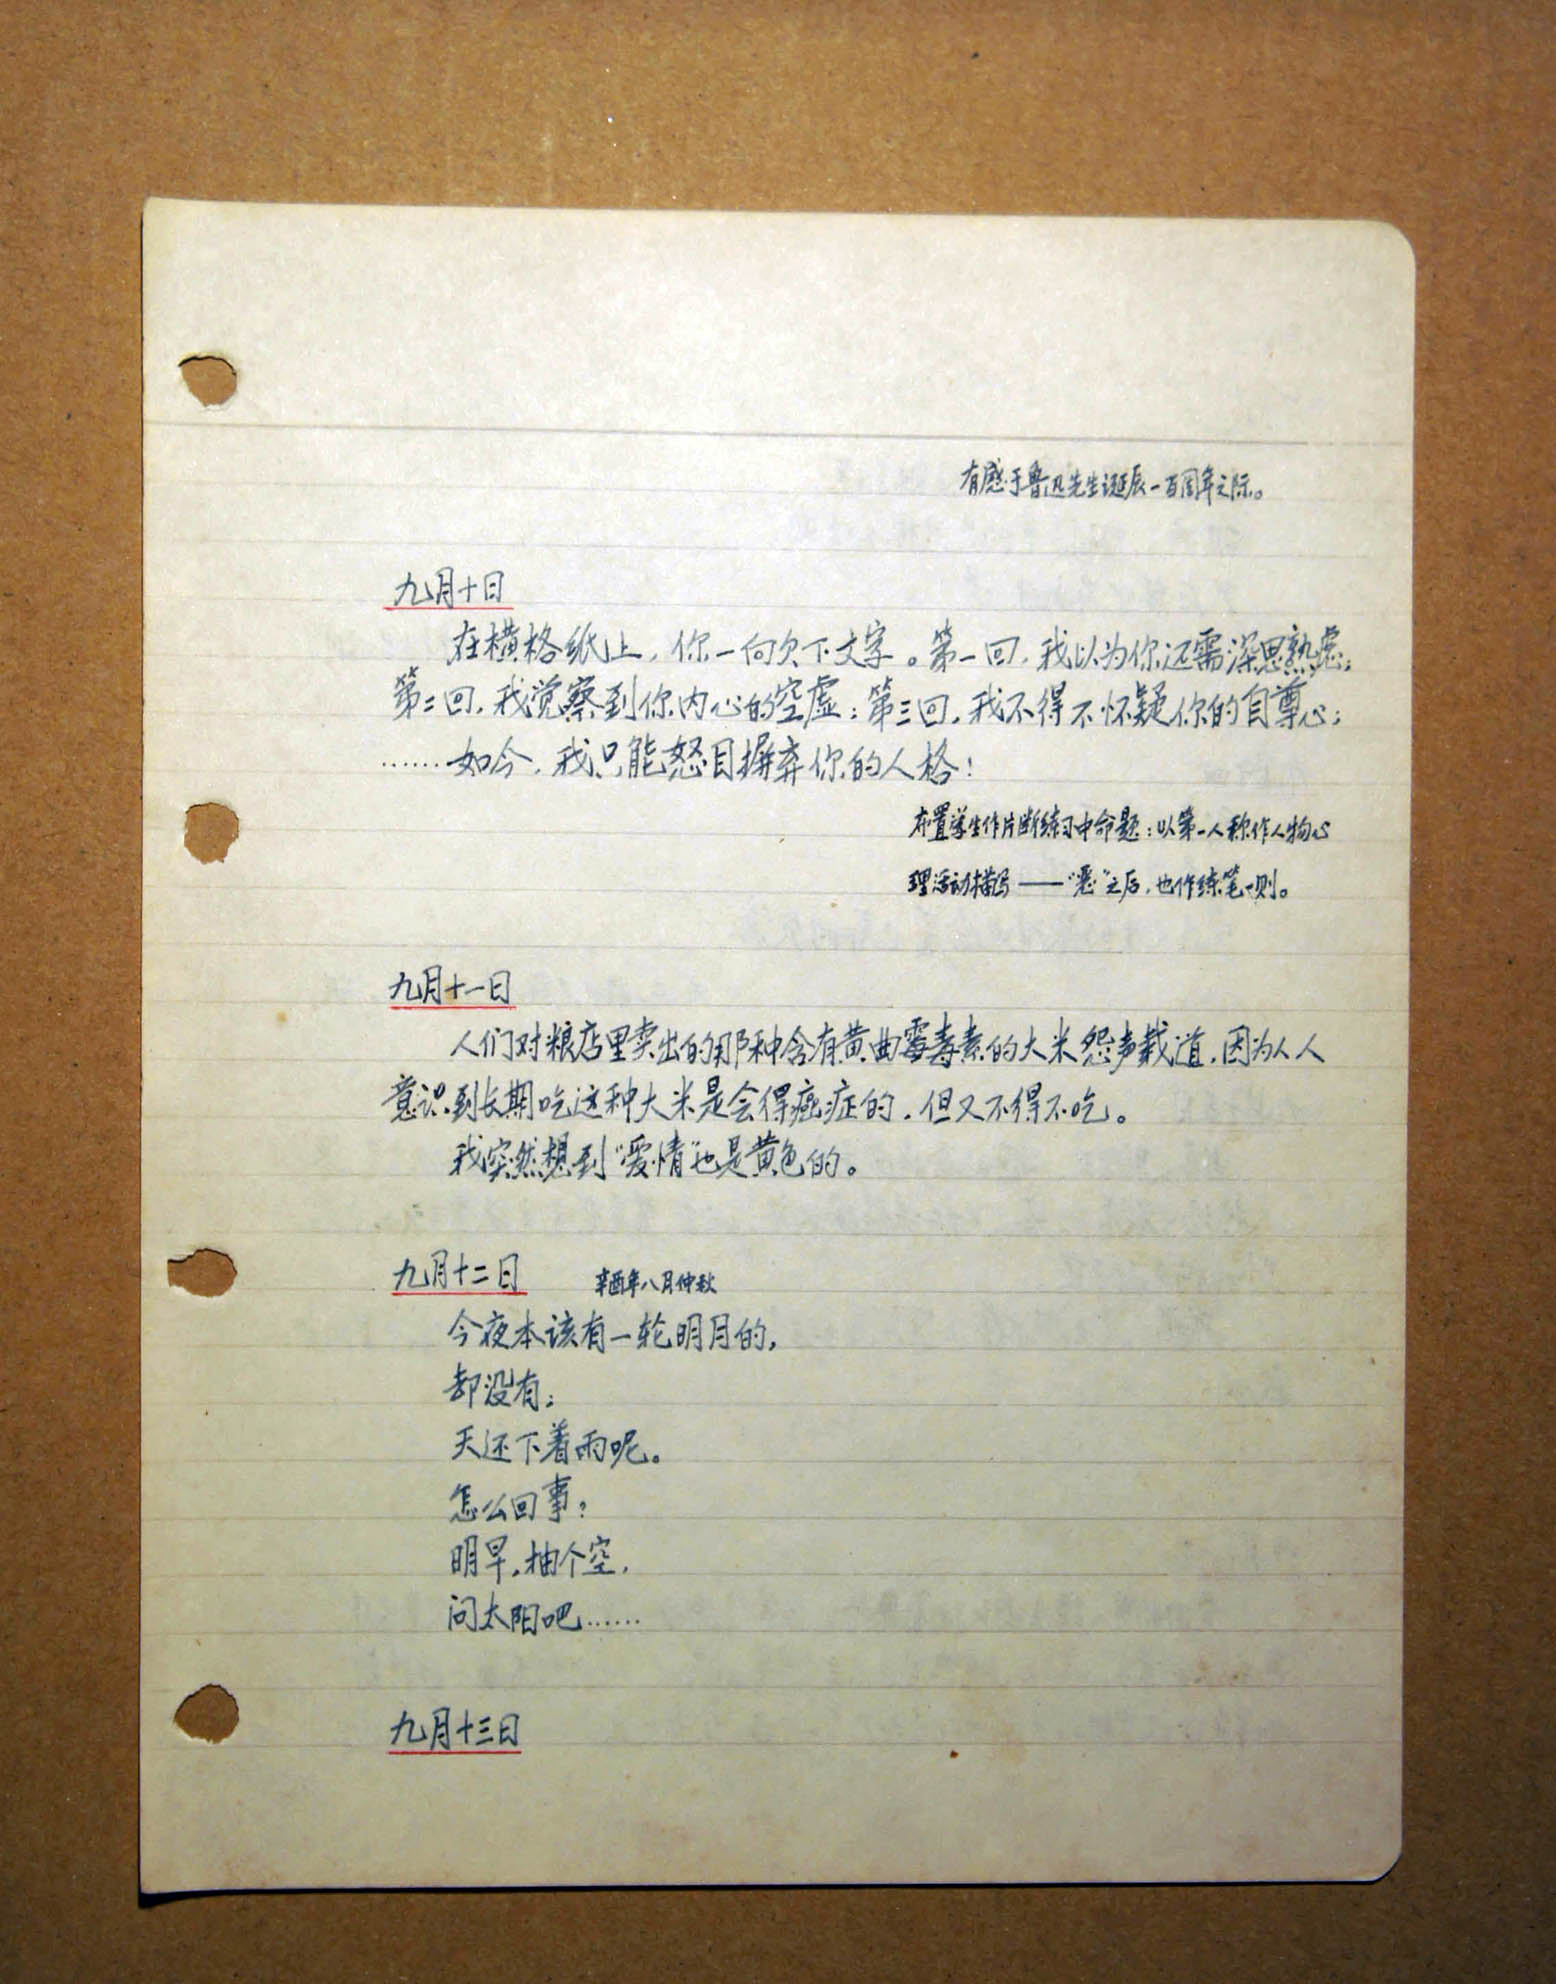 有感于鲁迅先生诞辰一百周年之际。
九月十日
在横格纸上，你一向欠下文字。第一回，我以为你还需深思熟虑；
第二回，我觉察到你内心的空虚；第三回，我不得不怀疑你的自尊心；
……如今，我只能怒目摒弃你的人格！
布置学生作片断练习中命题：以第一人称作人物心
理活动描写——“恶”之后，也作练笔一则。
九月十一日
人们对粮店里卖出的那种含有黄曲霉毒素的大米怨声载道，因为人人
意识到长期吃这种大米是会得癌症的，但又不得不吃。
我突然想到“爱情”也是黄色的。
九月十二日 辛酉年八月仲秋
今夜本该有一轮明月的，
却没有；
天还下着雨呢。
怎么回事？
明早，抽个空，
问太阳吧……
九月十三日